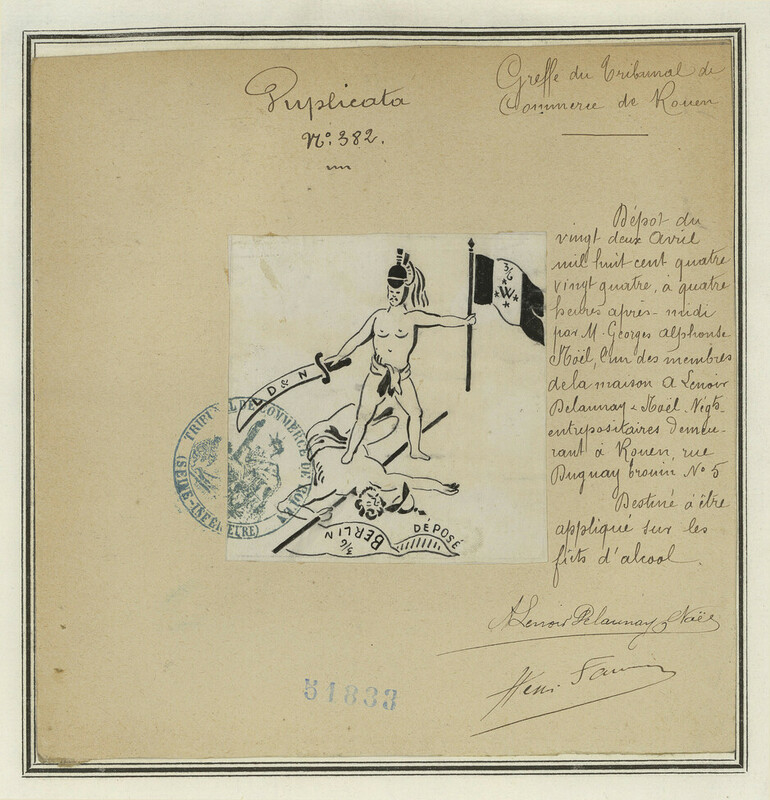 Duplicata
N° 382.
Greffe du Tribunal de
Commerce de Rouen
Dépot du
vingt deux Avril
mil huit cent quatre
vingt quatre, à quatre
heures après-midi
par M. Georges Alphonse
Noël, l'un des membres
de la maison A Lenoir
Delaunay & Noël Négts
entrepositaires demeu-
rant à Rouen, rue
Duguay trouin N° 5
Destiné à être
appliqué sur les
fûts d'alcool.
3/6
W
L D & N
TRIBUNAL DE COMMERCE DE ROUEN
(SEINE-INFERIEURE)
3/6 BERLIN
DÉPOSÉ
A Lenoir Delaunay & Noël
Henri
51833